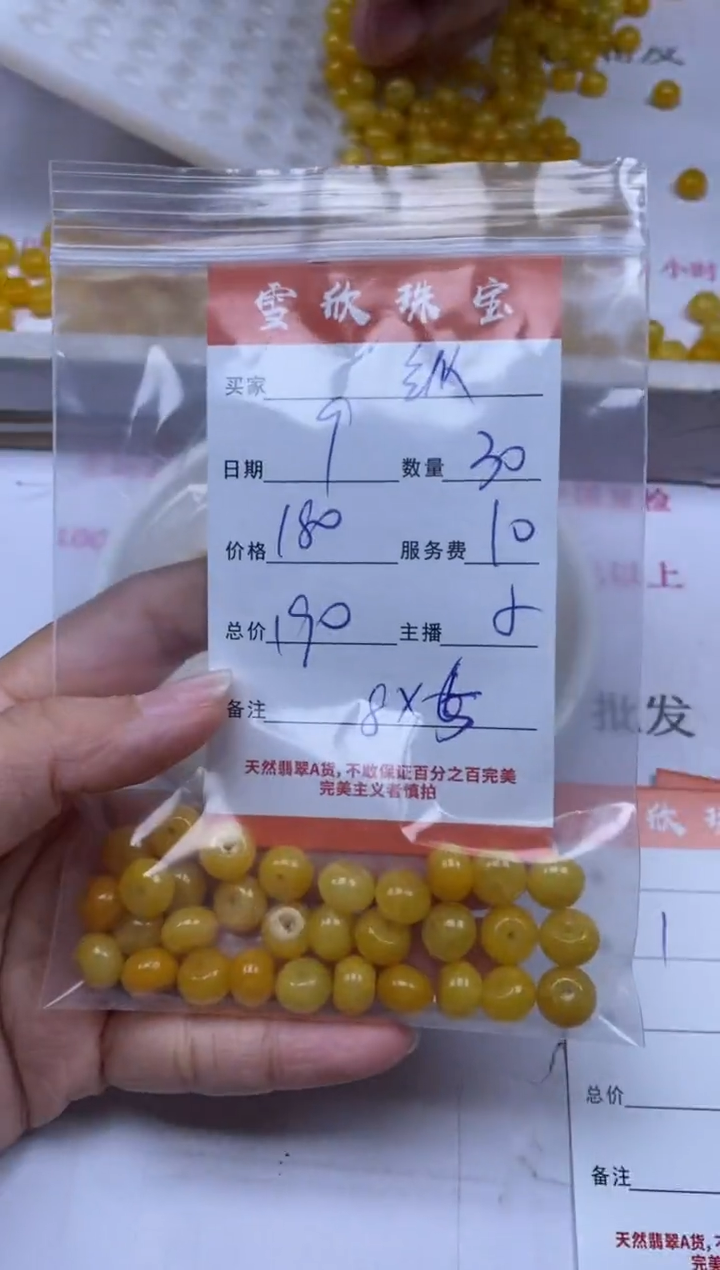 雪欣珠宝
买家 纵
日期 9 数量 30
价格 180 服务费 10
总价 190 主播
备注 8×
天然翡翠A货,不敢保证百分之百完美
完美主义者慎拍
小时
以上
批发
欣
1
总价
备注
天然翡翠A货,
完美